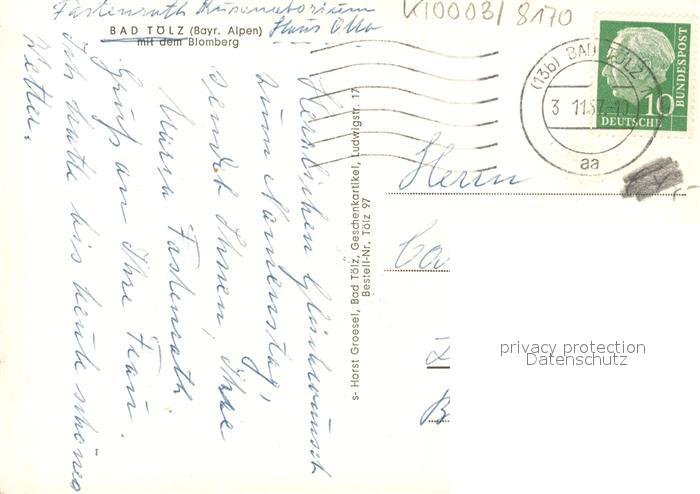 Fastenrath Kursanatorium
Haus Otto
K10003/ 8170
BAD TÖLZ (Bayr. Alpen)
mit dem Blomberg
Herzlichen Glückwunsch
zum Namenstag,
sendet Ihnen, Ihre
Maria Fastenrath
Gruß an Ihre Frau.
Ich hatte bis heute schönes
Wetter.
s- Horst Groesel, Bad Tölz, Geschenkartikel, Ludwigstr. 17
Bestell-Nr. Tölz 97
(13b) BAD TÖLZ 1
3 11 57-10
aa
10
DEUTSCHE
BUNDESPOST
Herrn
privacy protection
Datenschutz